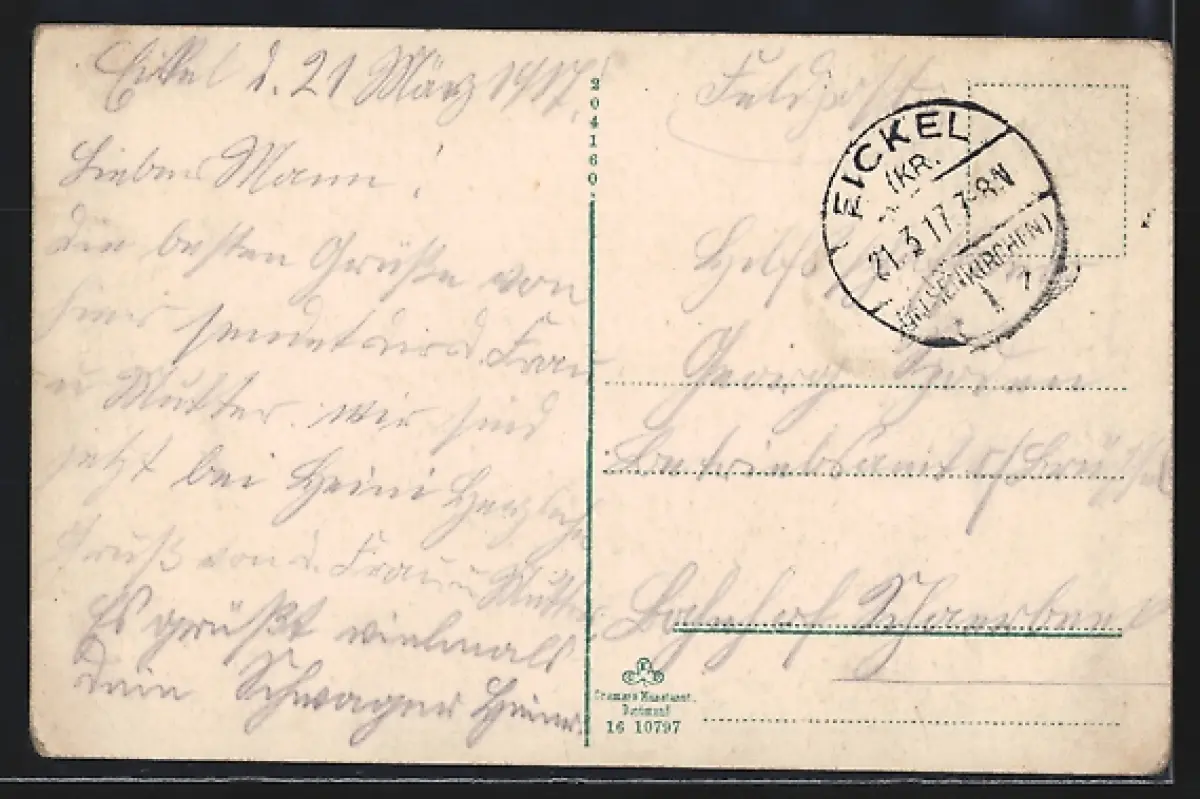 Eickel d. 21 März 1917.
Lieber Mann!
die besten Grüße von
hier sendet dir d. Frau
u Mutter. wir sind
jetzt bei Heini Herzliche
Gruß von d. Frau u Mutter
Es grüßt vielmals
dein Schwager Heinr.
204160
Feldpost
EICKEL
(KR.
21.3.17.7-8N
GELSENKIRCHEN)
1
Georg
Betriebsamt Brüssel
Bahnhof Schaerbeek
Cramers Kunstanst.
Dortmund
16 10797